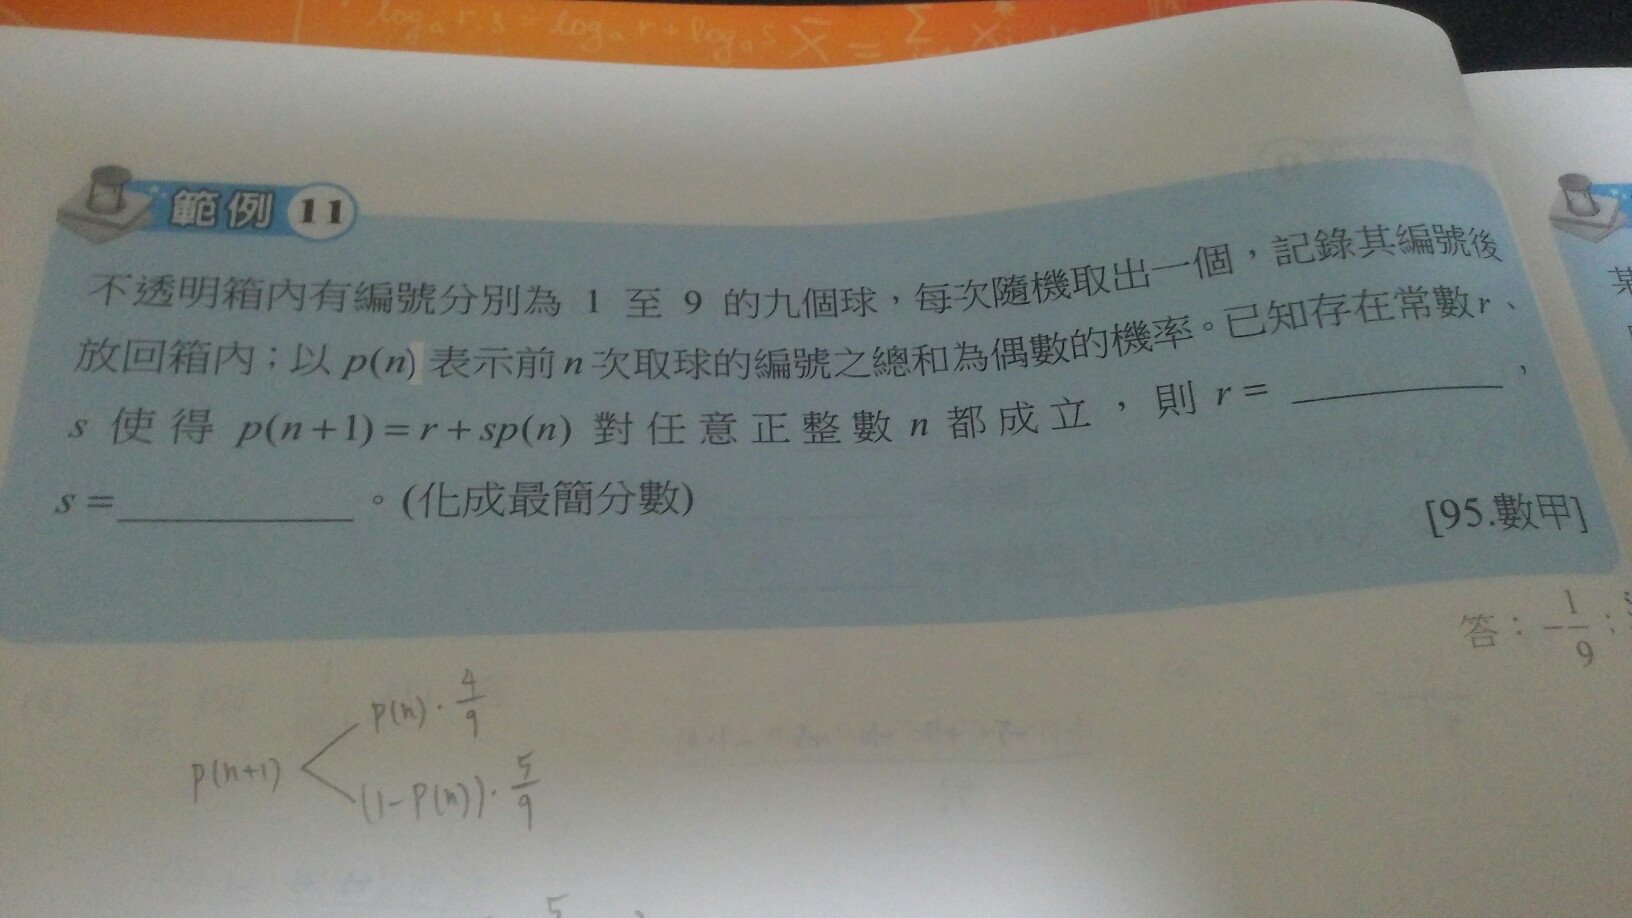 logₐ r.s = logₐ r + logₐ s X̄ = Σ
範例 11
不透明箱內有編號分別為 1 至 9 的九個球，每次隨機取出一個，記錄其編號後
放回箱內；以 p(n) 表示前 n 次取球的編號之總和為偶數的機率。已知存在常數 r、
s 使得 p(n+1)=r+sp(n) 對任意正整數 n 都成立，則 r= ＿＿＿＿，
s=＿＿＿＿。(化成最簡分數)
[95.數甲]
答：-1/9；
p(n)·4/9
p(n+1)
(1-P(n))·5/9
5
某